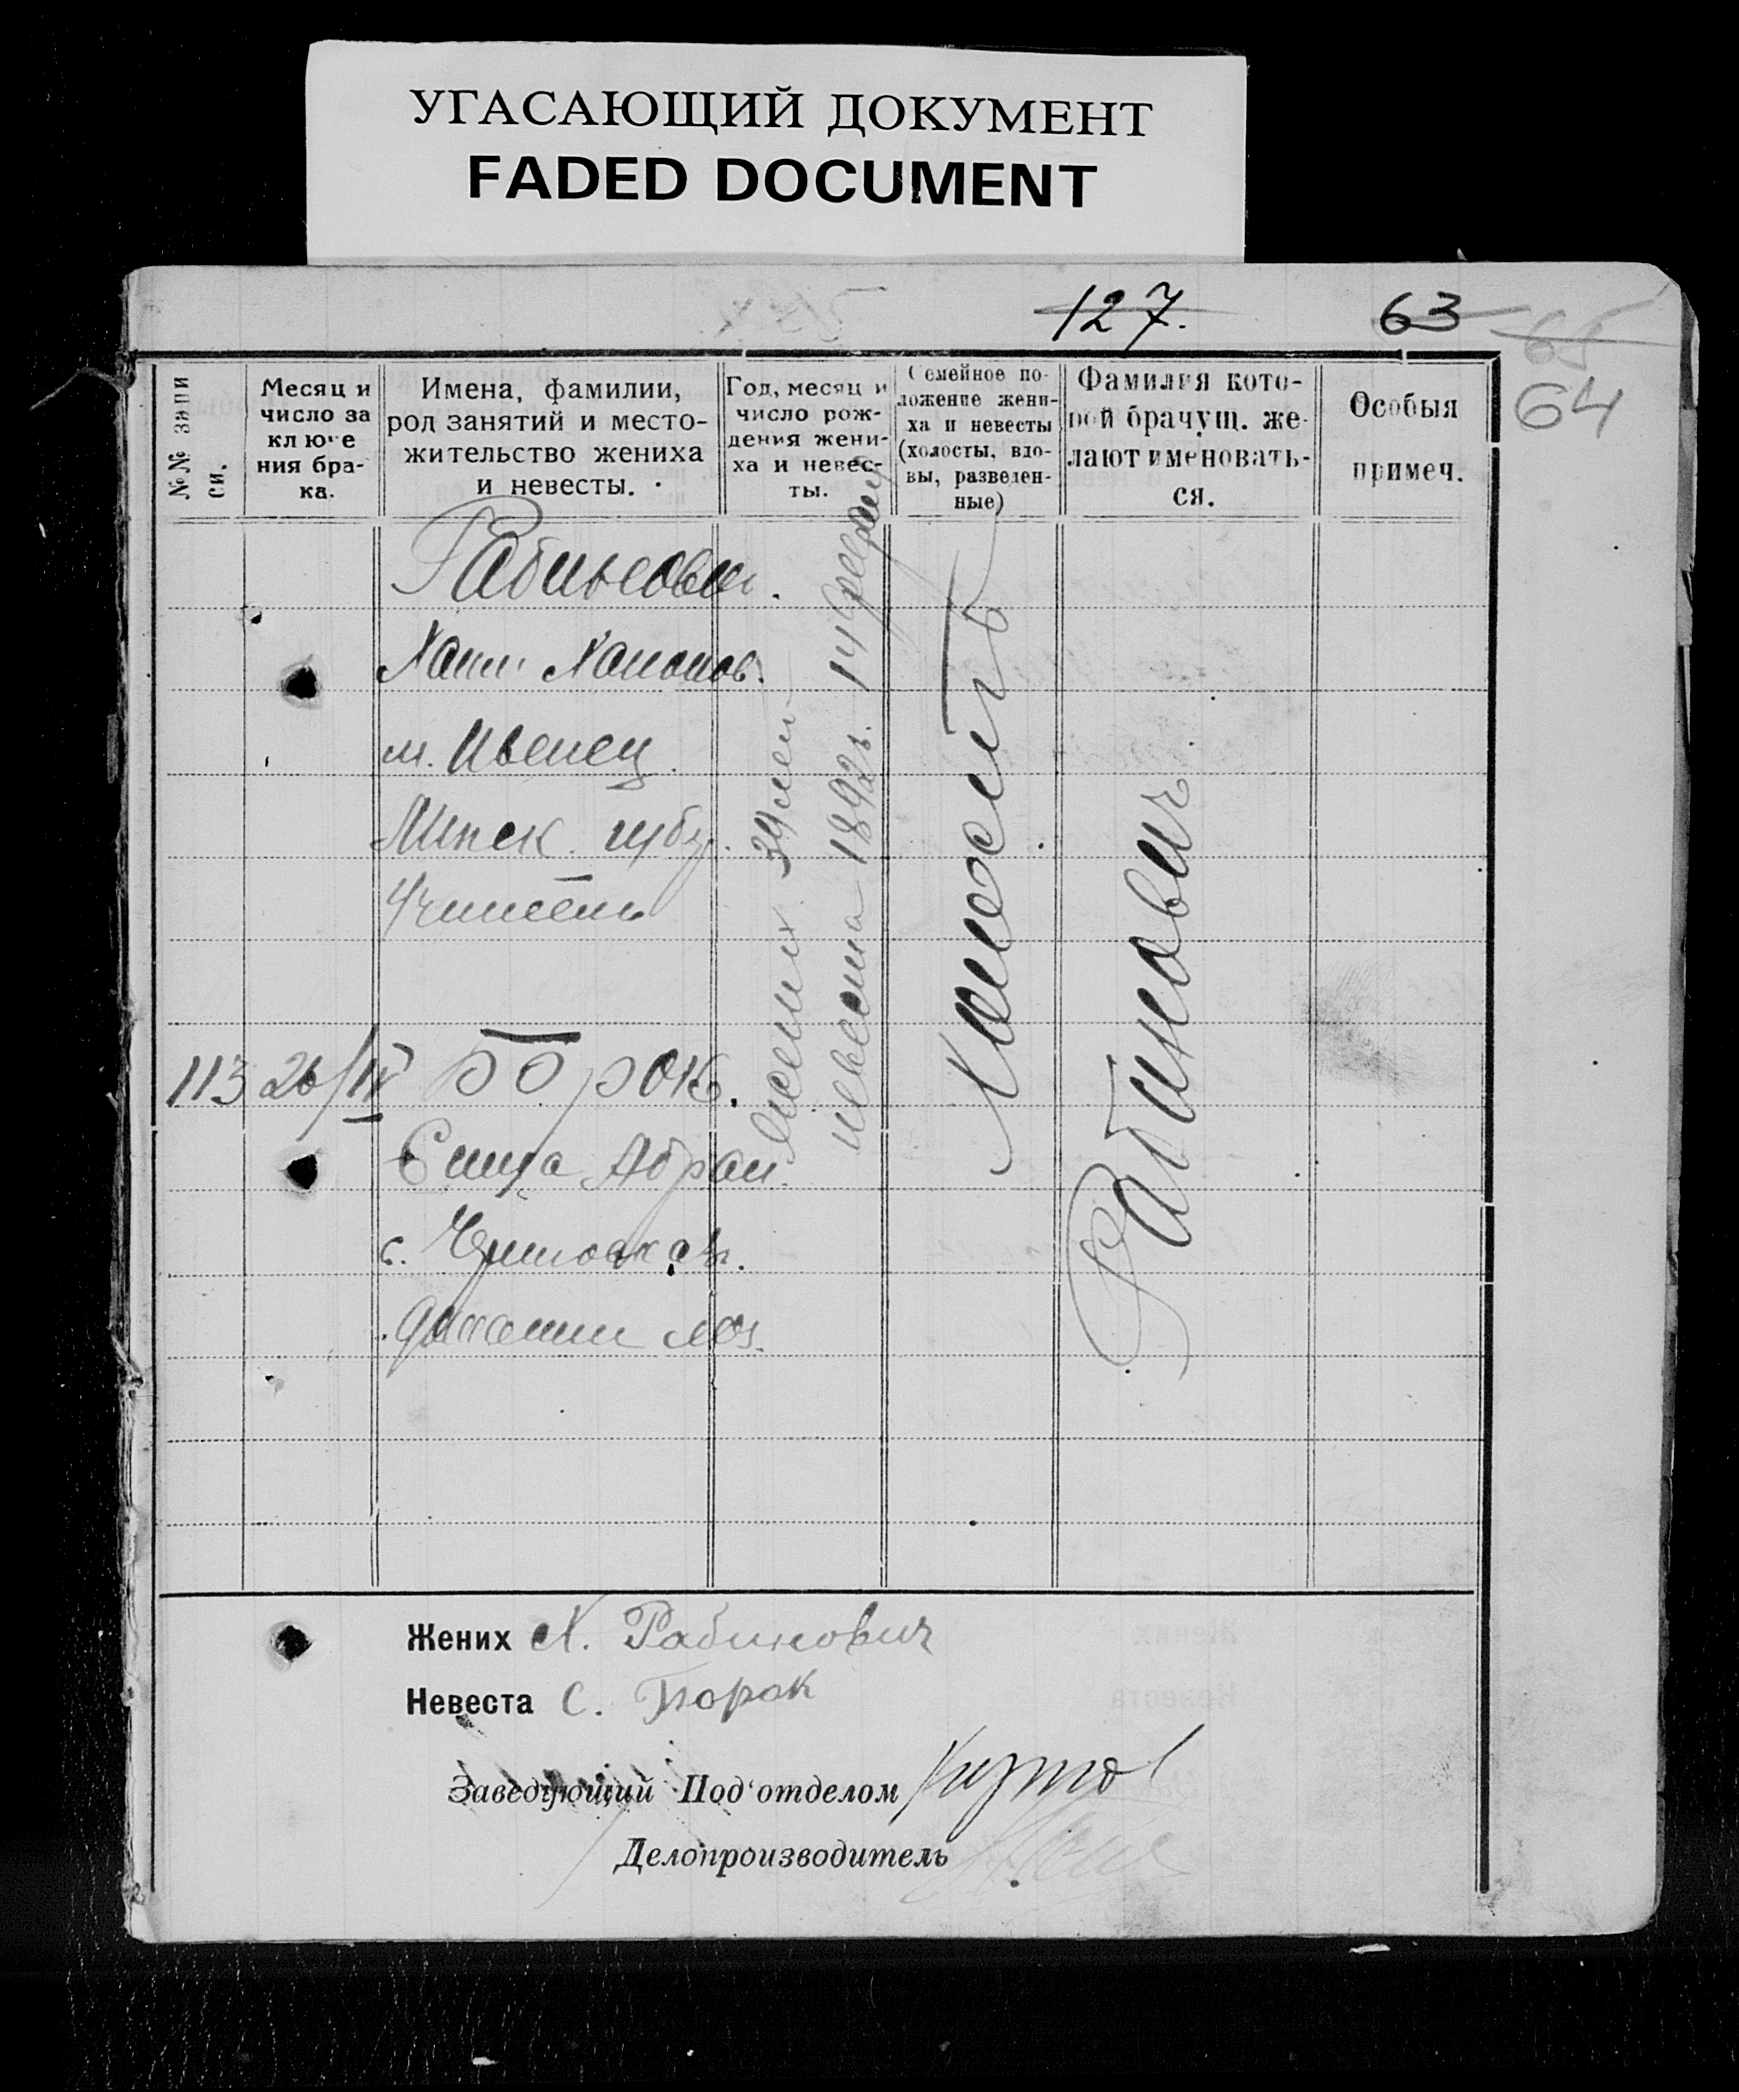 УГАСАЮЩИЙ ДОКУМЕНТ
FADED DOCUMENT
127. 63 65
64
№№ запи
си.
Месяц и
число за
ключе
ния бра-
ка.
Имена, фамилии,
род занятий и место-
жительство жениха
и невесты.
Год, месяц и
число рож-
дения жени-
ха и невес-
ты.
Семейное по-
ложение жени-
ха и невесты
(холосты, вдо-
вы, разведен-
ные)
Фамилия кото-
рой брачущ. же-
лают именовать-
ся.
Особыя
примеч.
Рабинович.
Хаим
м. Ивенец
Минск. губ.
Учитель
113 26/IV
Абрам.
жених 34 лет
невеста 1892 г. 14 февраля
Холост
Рабинович
Жених Х. Рабинович
Невеста С.
Заведующий Под'отделом
Делопроизводитель